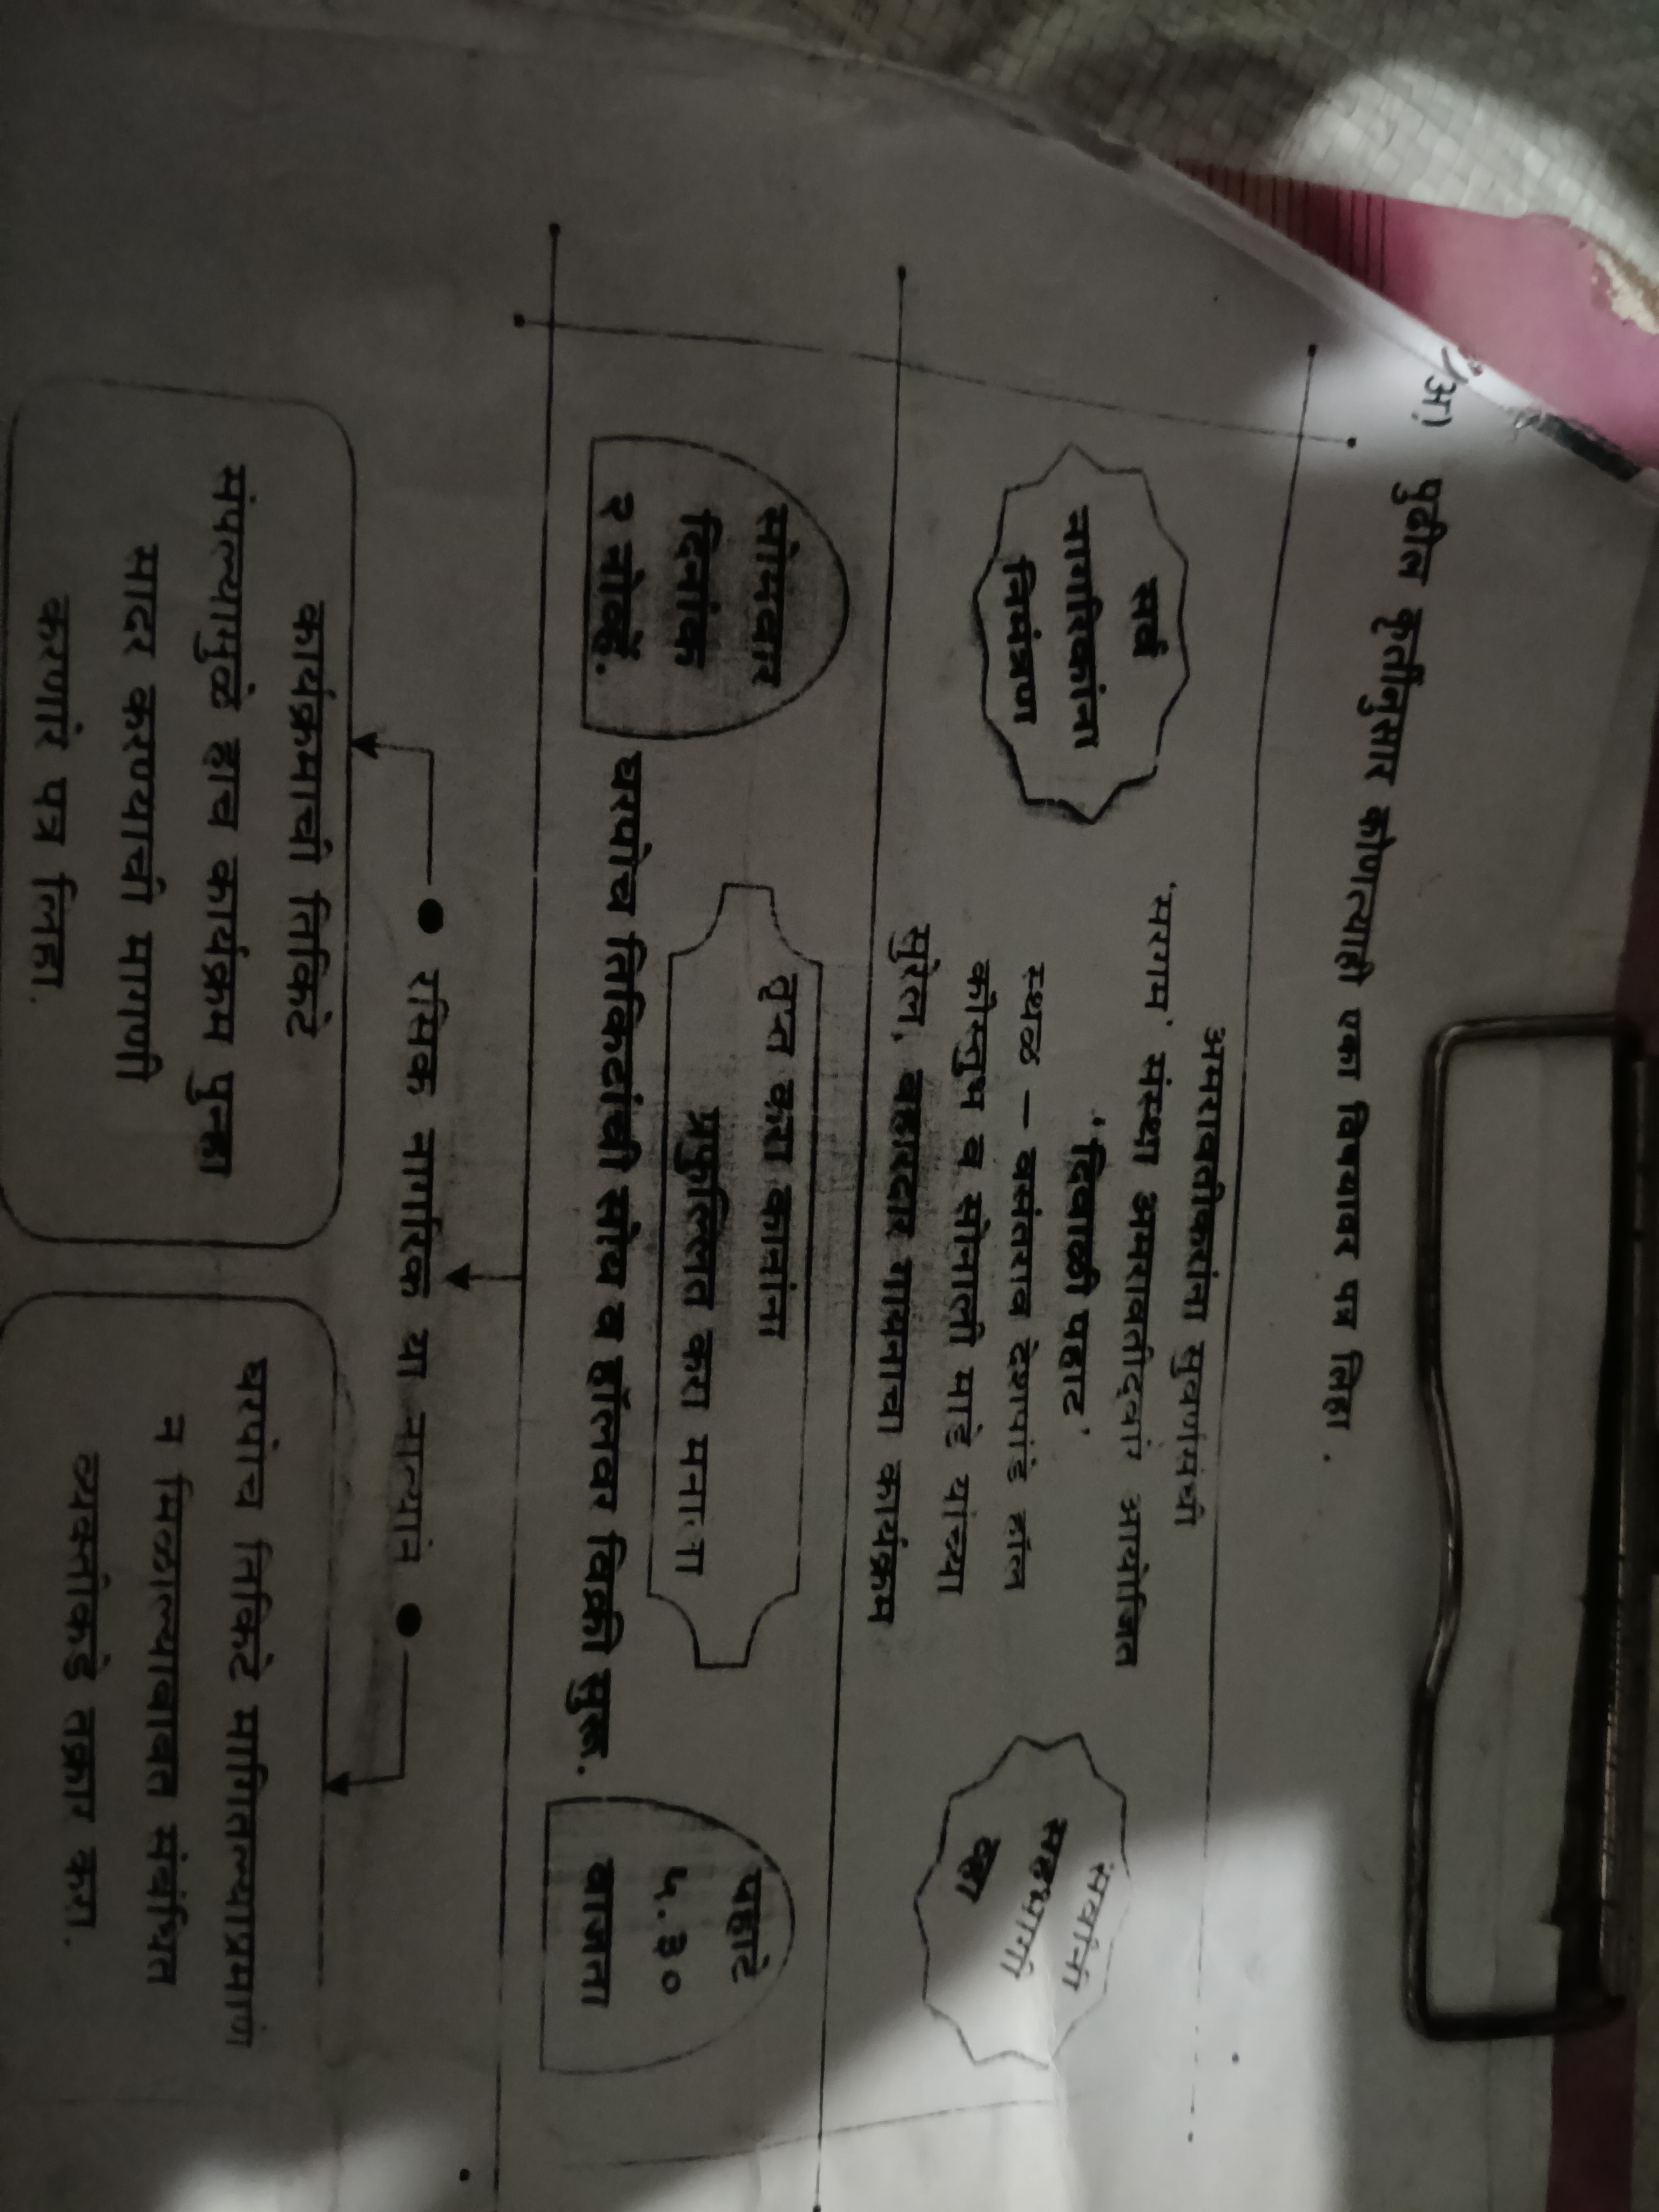 अ) पुढील कृतीनुसार कोणत्याही एका विषयावर पत्र लिहा .
सर्व
नागरिकांना
निमंत्रण
अमरावतीकरांना सुवर्णसंधी
'सरगम' संस्था अमरावतीद्वारे आयोजित
"दिवाळी पहाट"
स्थळ – वसंतराव देशपांडे हॉल
कौस्तुभ व सोनाली मांडे यांच्या
सुरेल, बहारदार गायनाचा कार्यक्रम
सर्वांनी
सहभागी
व्हा
सोमवार
दिनांक
२ नोव्हें.
तृप्त करा कानांना
प्रफुल्लित करा मनांना
घरपोच तिकिटांची सोय व हॉलवर विक्री सुरू.
पहाटे
५.३०
वाजता
● रसिक नागरिक या नात्याने ●
कार्यक्रमाची तिकिटे
संपल्यामुळे हाच कार्यक्रम पुन्हा
सादर करण्याची मागणी
करणारे पत्र लिहा.
घरपोच तिकिटे मागितल्याप्रमाणे
न मिळाल्याबाबत संबंधित
व्यक्तीकडे तक्रार करा.